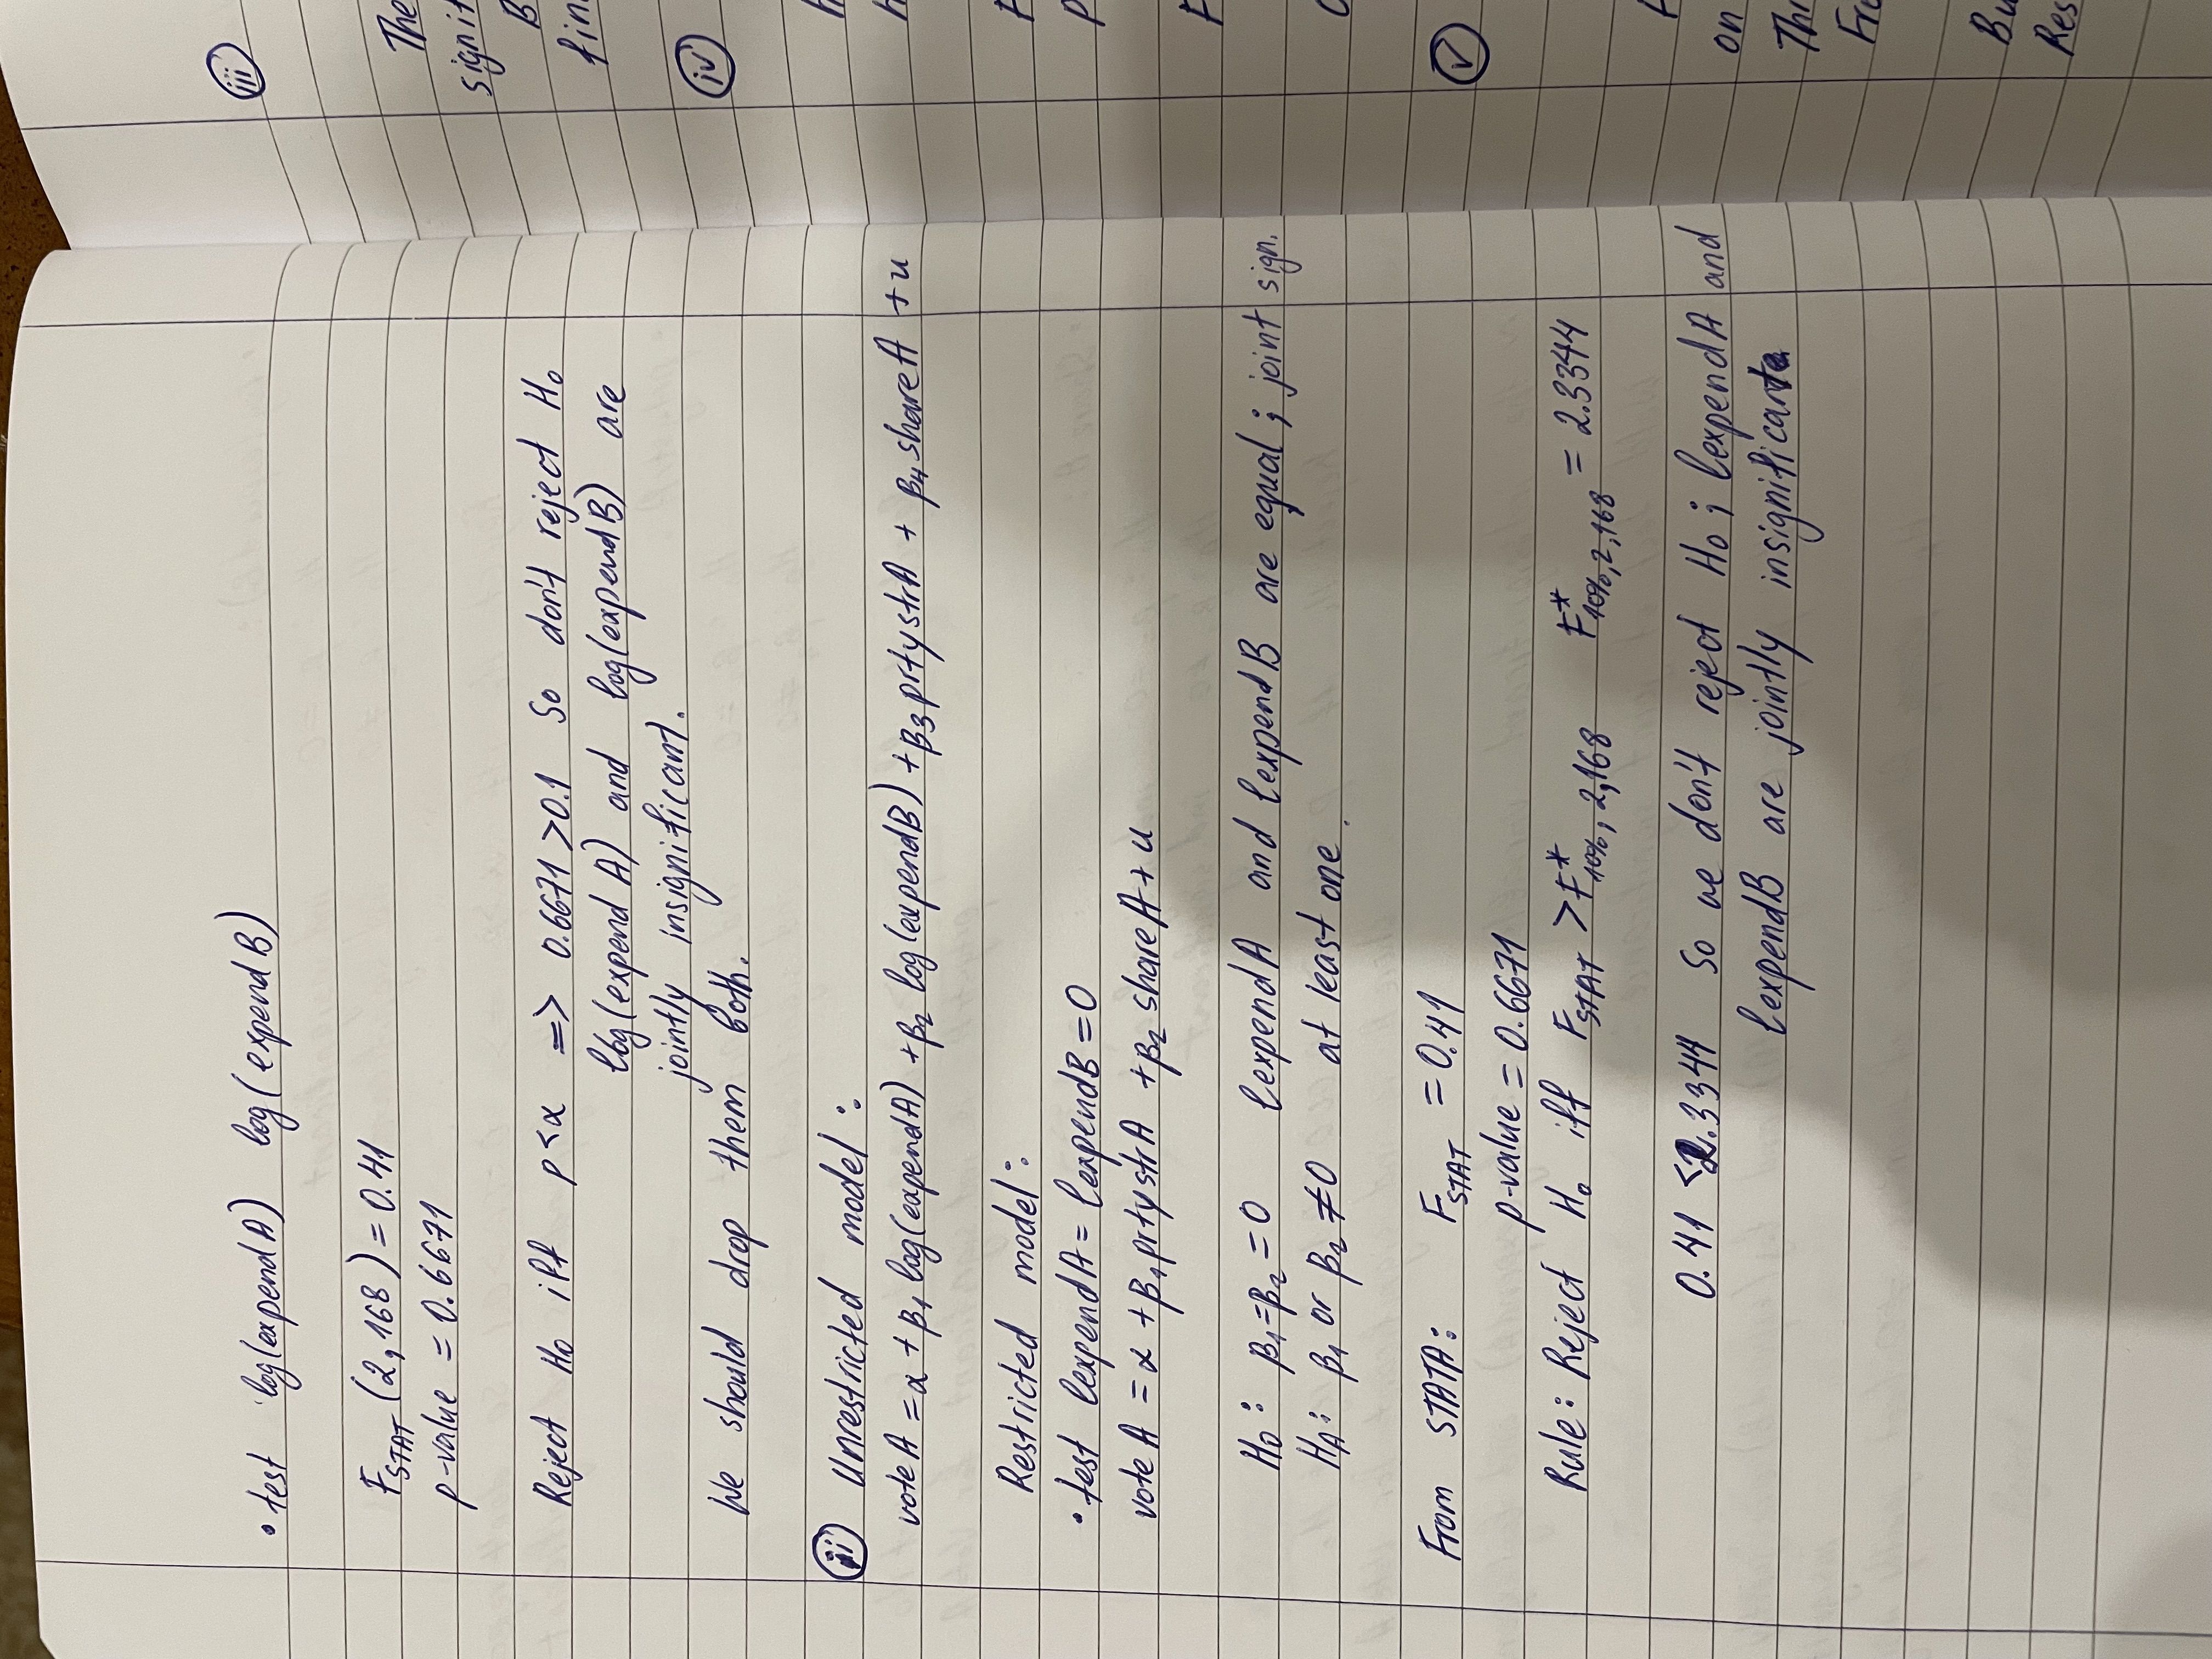 • test log(expend A) log(expend B)
F_STAT (2, 168) = 0.41
p-value = 0.6671
Reject H₀ iff p<α => 0.6671 >0.1 So don't reject H₀
log(expend A) and log(expend B) are
jointly insignificant.
We should drop them both.
ii Unrestricted model:
vote A = α + β₁ log(expendA) + β₂ log(expendB) + β₃ prtystrA + β₄ shareA + u
Restricted model:
• test lexpendA = lexpendB = 0
vote A = α + β₁ prtystrA + β₂ shareA + u
H₀: β₁=β₂=0 lexpendA and lexpendB are equal; joint sign.
H_A: β₁ or β₂ ≠0 at least one.
From STATA: F_STAT = 0.41
p-value = 0.6671
Rule: Reject H₀ iff F_STAT > F*10%, 2,168 F*10%,2,168 = 2.3344
0.41 < 2.3344 So we don't reject H₀; lexpendA and
lexpendB are jointly insignificant.
iii
The
B
iv
v
on